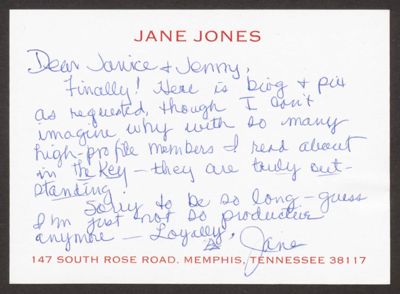 JANE JONES
Dear Janice & Jenny,
Finally! Here is biog & pix
as requested, though I don't
imagine why with so many
high-profile members I read about
in The Key – they are truly out-
standing!
Sorry to be so long – guess
I'm just not so productive
anymore – Loyally,
Jane
147 SOUTH ROSE ROAD, MEMPHIS, TENNESSEE 38117